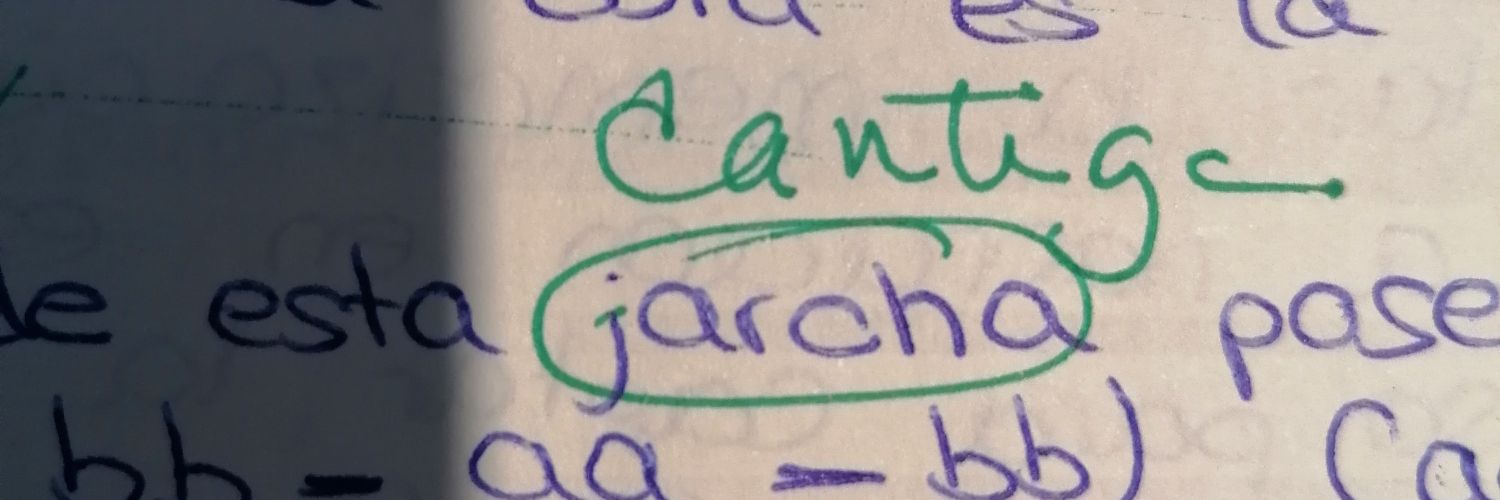 es la
Cantiga
de esta jarcha pose
bb - aa - bb) (a